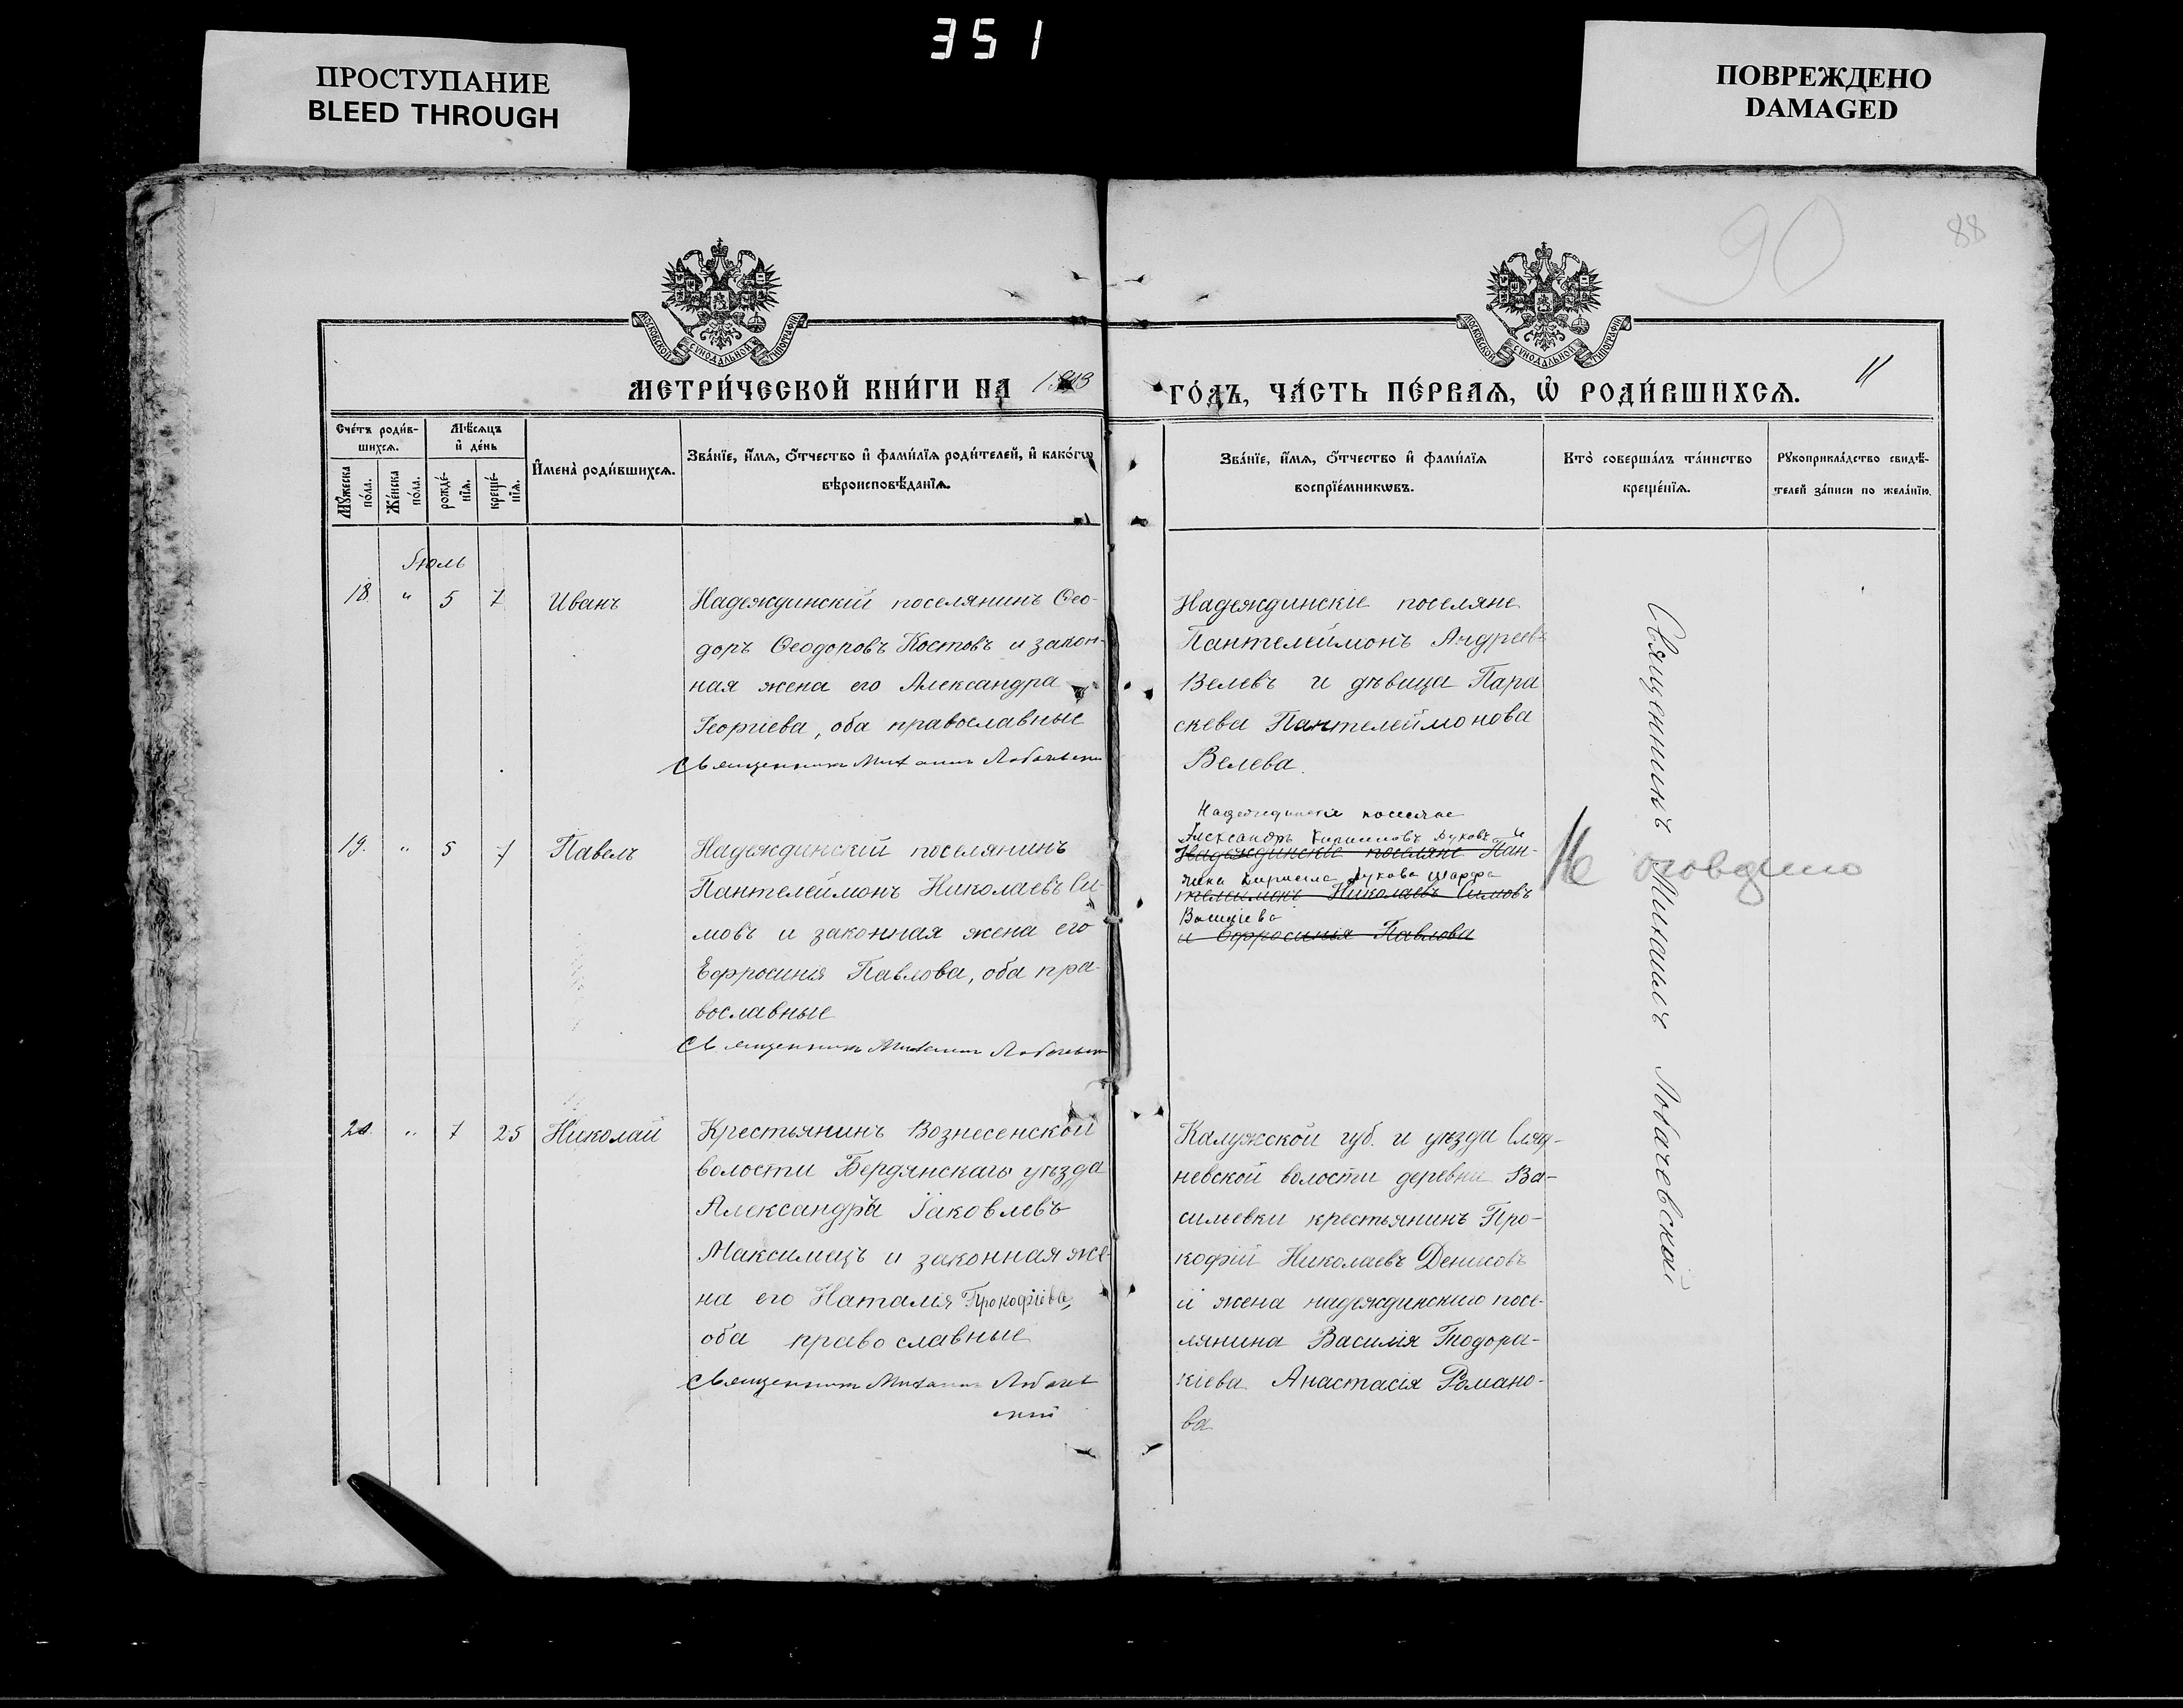 351
ПРОСТУПАНИЕ
BLEED THROUGH
ПОВРЕЖДЕНО
DAMAGED
90
88
МОСКОВСКОЙ СѴНОДАЛЬНОЙ ТИПОГРАФІИ
МОСКОВСКОЙ СѴНОДАЛЬНОЙ ТИПОГРАФІИ
МЕТРИ́ЧЕСКОЙ КНИ́ГИ НА
ГО́ДЪ, ЧА́СТЬ ПЕ́РВАѦ, Ѽ РОДИ́ВШИХСѦ.
Сче́тъ роди́в-
шихсѧ.
Мꙋ́жеска по́ла.
Же́нска по́ла.
Мѣ́сѧцъ
и҆ де́нь
рожде́-
нїѧ.
креще́-
нїѧ.
И҆мена̀ роди́вшихсѧ.
Зва́нїе, и҆́мѧ, ѻ҆́тчество и҆ фами́лїѧ роди́телей, и҆ како́гѡ
вѣроисповѣ́данїѧ.
Зва́нїе, и҆́мѧ, ѻ҆́тчество и҆ фами́лїѧ
воспрїе́мникѡвъ.
Кто̀ соверша́лъ та́инство
креще́нїѧ.
Рꙋкоприкла́дство свидѣ́-
телей за́писи по жела́нїю.
Іюль
18. " 5 7 Иванъ
Надеждинскій поселянинъ Ѳео-
доръ Ѳеодоровъ Костовъ и закон-
ная жена его Александра
Георгіева, оба православные
Священникъ Михаилъ Лобачевскій
Надеждинскіе поселяне
Пантелеймонъ Андреевъ
Велевъ и дѣвица Пара
скева Пантелеймонова
Велева.
19. " 5 7 Павелъ
Надеждинскій поселянинъ
Пантелеймонъ Николаевъ Си-
мовъ и законная жена его
Ефросинія Павлова, оба пра-
вославные
Священникъ Михаилъ Лобачевскій
Надеждинскіе поселяне
Александръ Кирилловъ Луковъ и
Надеждинскіе поселяне Пан-
жена Кирилла Лукова Марфа
телеймонъ Николаевъ Симовъ
и Ефросинія Павлова
Не оговорено
20. " 7 25 Николай
Крестьянинъ Вознесенской
волости Бердянскаго уѣзда
Александръ Іаковлевъ
Максимецъ и законная же-
на его Наталія Прокофіева,
оба православные
Священникъ Михаилъ Лобачев
скій
Калужской губ. и уѣзда
невской волости деревни Ва-
сильевки крестьянинъ Про-
кофій Николаевъ Денисовъ
и жена надеждинскаго посе-
лянина Василія Тодора-
кіева Анастасія Романо-
ва
Священникъ Михаилъ Лобачевскій